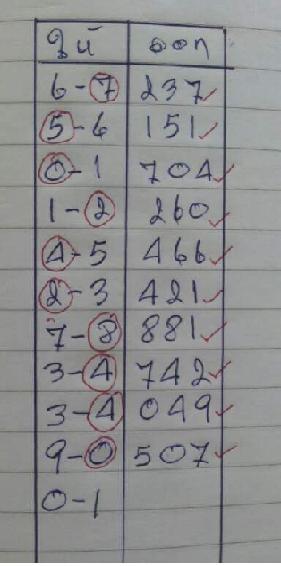 วิ่น ออก
6-7 237
5-6 151
0-1 704
1-2 260
4-5 466
2-3 421
7-8 881
3-4 742
3-4 049
9-0 507
0-1